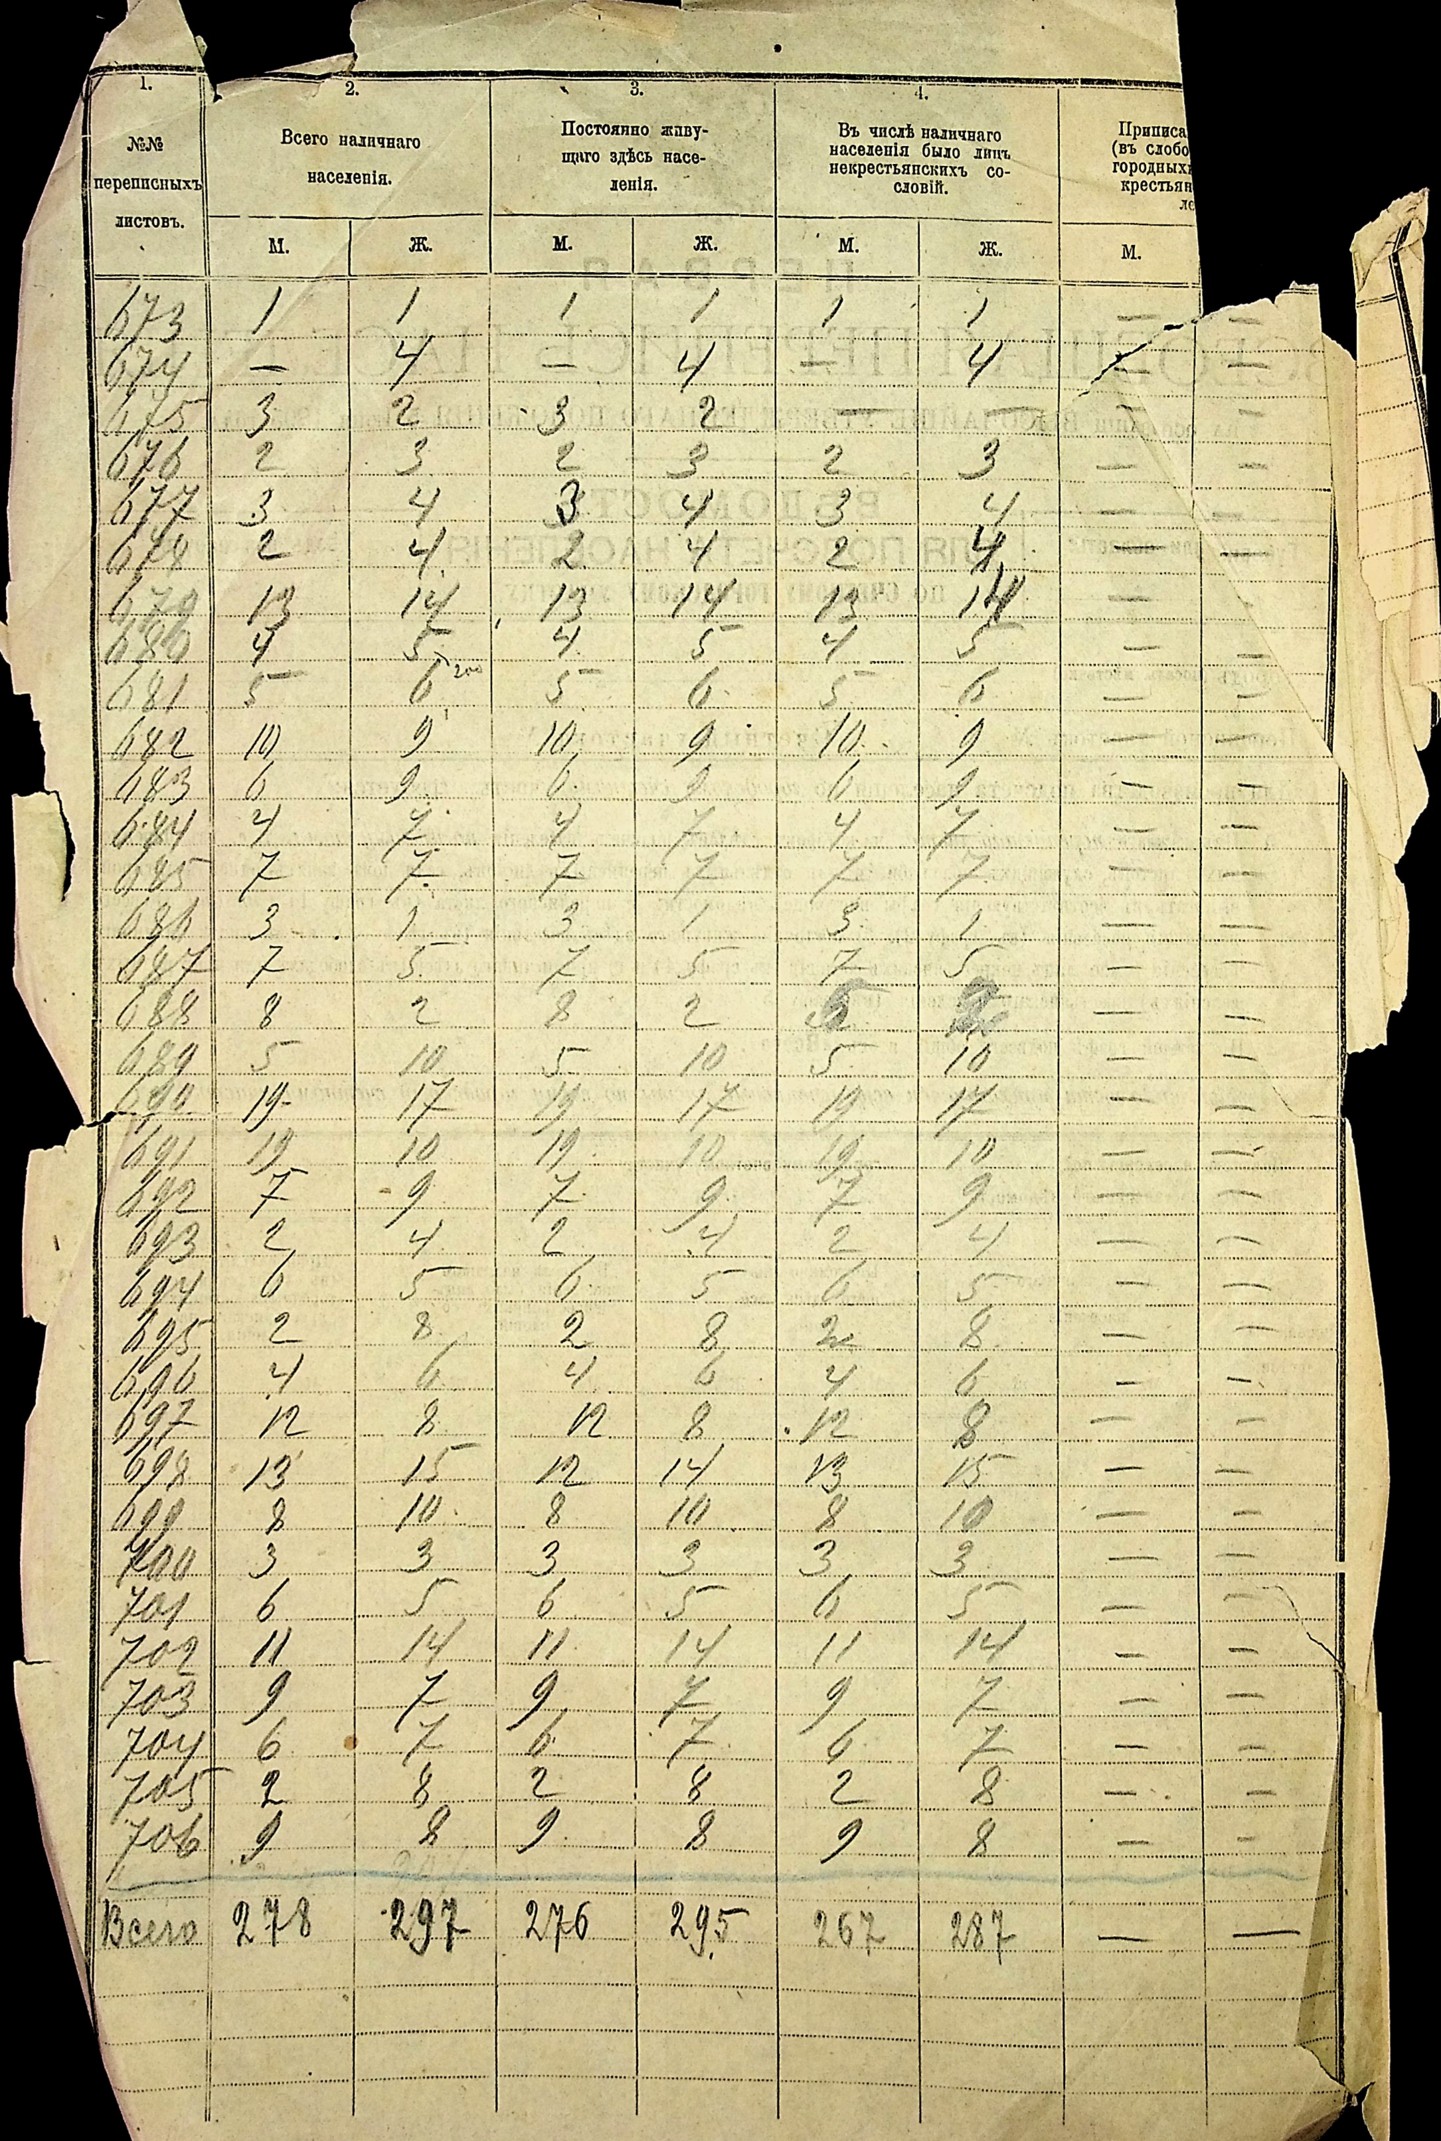 1. 2. 3. 4.
№№ переписныхъ листовъ.
Всего наличнаго населенія.
Постоянно живу-
щаго здѣсь насе-
ленія.
Въ числѣ наличнаго
населенія было лицъ
некрестьянскихъ со-
словій.
Приписа
(въ слобо
городных
крестьян
ле
М. Ж. М. Ж. М. Ж. М.
673 1 1 1 1 1 1 — —
674 — 4 — 4 — 4 — —
675 3 2 3 2 — — — —
676 2 3 2 3 2 3 — —
677 3 4 3 4 3 4 — —
678 2 4 2 4 2 4 — —
679 13 14 13 14 13 14 — —
680 4 5 4 5 4 5 — —
681 5 6 5 6 5 6 — —
682 10 9 10 9 10 9 — —
683 6 9 6 9 6 9 — —
684 4 7 4 7 4 7 — —
685 7 7 7 7 7 7 — —
686 3 1 3 1 3 1 — —
687 7 5 7 5 7 5 — —
688 8 2 8 2 — —
689 5 10 5 10 5 10 — —
690 19 17 19 17 19 17 — —
691 19 10 19 10 19 10 — —
692 7 9 7 9 7 9 — —
693 2 4 2 4 2 4 — —
694 6 5 6 5 6 5 — —
695 2 8 2 8 2 8 — —
696 4 6 4 6 4 6 — —
697 12 8 12 8 12 8 — —
698 13 15 12 14 13 15 — —
699 8 10 8 10 8 10 — —
700 3 3 3 3 3 3 — —
701 6 5 6 5 6 5 — —
702 11 14 11 14 11 14 — —
703 9 7 9 7 9 7 — —
704 6 7 6 7 6 7 — —
705 2 8 2 8 2 8 — —
706 9 8 9 8 9 8 — —
Всего 278 297 276 295 267 287 — —